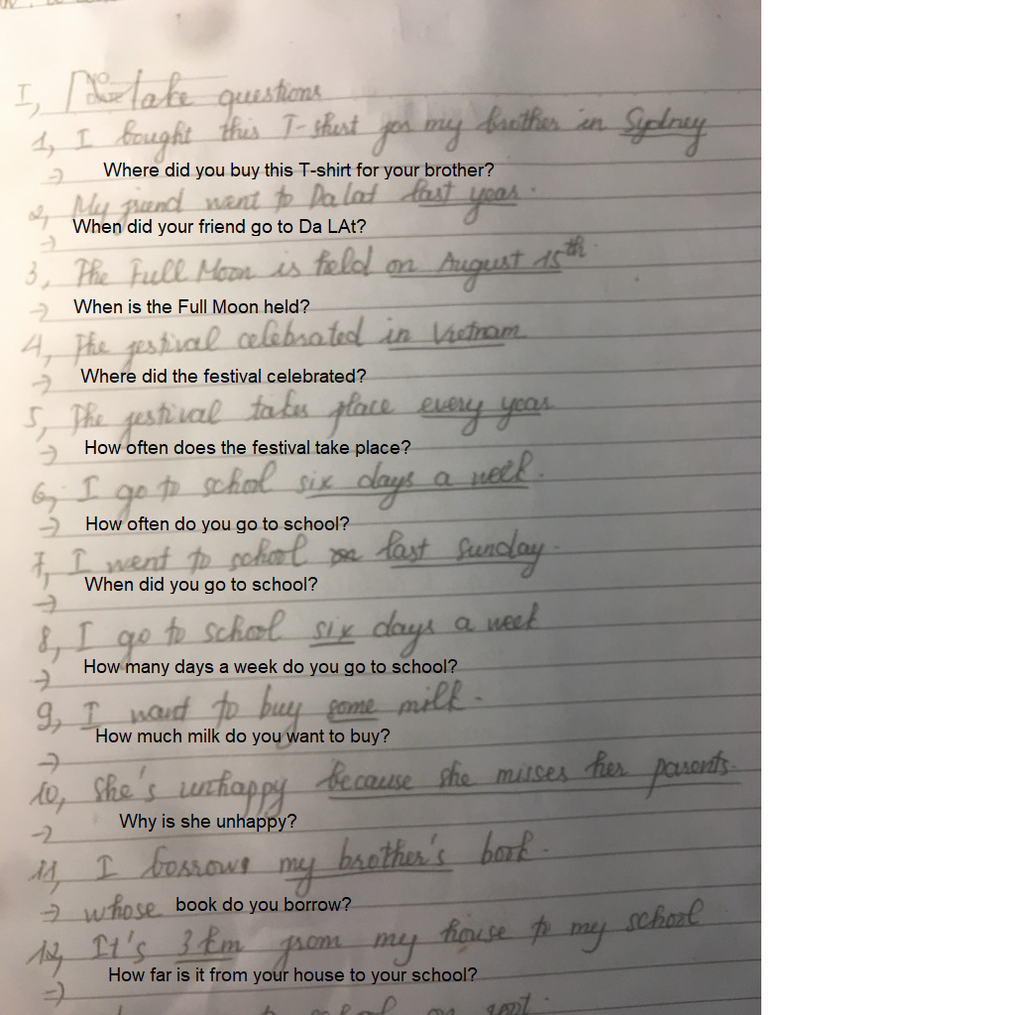 I, Make questions
1, I bought this T-shirt for my brother in Sydney
→ Where did you buy this T-shirt for your brother?
2, My friend went to Da lat last year.
→ When did your friend go to Da LAt?
3, The Full Moon is held on August 15th.
→ When is the Full Moon held?
4, The festival celebrated in Vietnam
→ Where did the festival celebrated?
5, The festival takes place every year
→ How often does the festival take place?
6, I go to school six days a week.
→ How often do you go to school?
7, I went to school last Sunday.
→ When did you go to school?
8, I go to school six days a week
→ How many days a week do you go to school?
9, I want to buy some milk.
→ How much milk do you want to buy?
10, She's unhappy because she misses her parents.
→ Why is she unhappy?
11, I borrows my brother's book.
→ whose book do you borrow?
12, It's 3 km from my house to my school
→ How far is it from your house to your school?